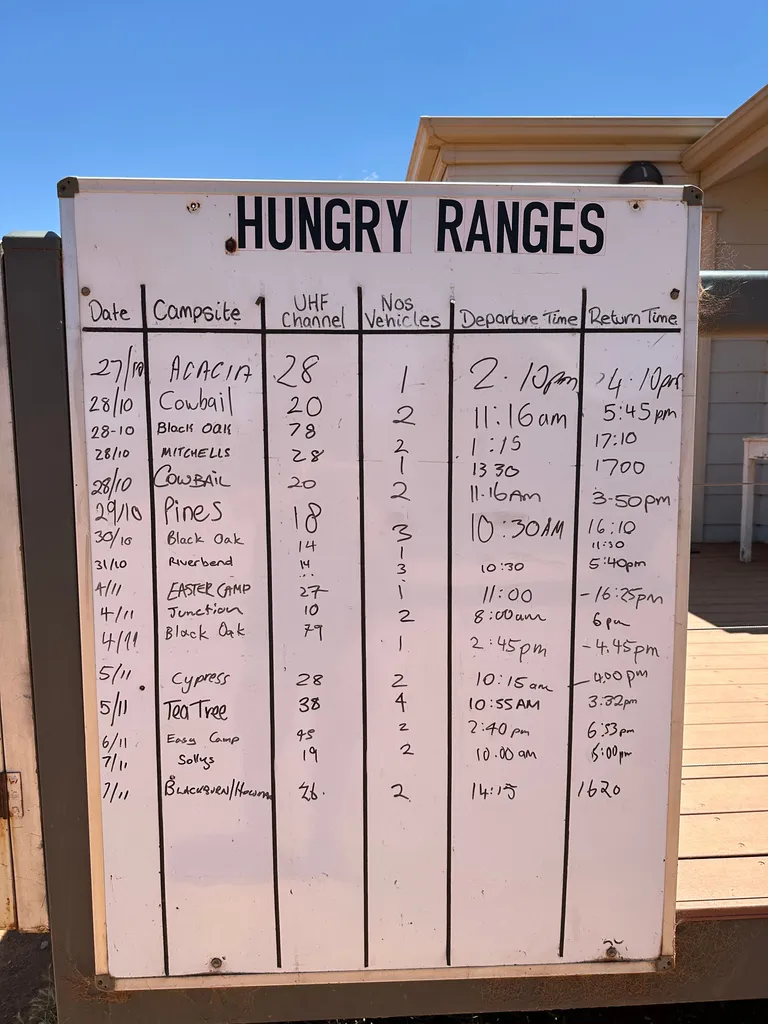 HUNGRY RANGES
Date Campsite UHF Channel Nos Vehicles Departure Time Return Time
27/10 ACACIA 28 1 2.10pm 4.10pm
28/10 Cowbail 20 2 11:16am 5:45pm
28-10 Black Oak 78 2 1:15 17:10
28/10 MITCHELLS 28 1 1330 1700
28/10 COWBAIL 20 2 11.16AM 3-50pm
29/10 Pines 18 3 10:30AM 16:10
30/10 Black Oak 14 1 11:30
31/10 Riverbend 14 3 10:30 5:40pm
4/11 EASTER CAMP 27 1 11:00 -16:25pm
4/11 Junction 10 2 8:00am 6pm
4/11 Black Oak 79 1 2:45pm -4.45pm
5/11 Cypress 28 2 10:15am 4:00pm
5/11 Tea Tree 38 4 10:55AM 3:32pm
6/11 Easy Camp 45 2 2:40pm 6:53pm
7/11 Sollys 19 2 10.00am 5:00pm
7/11 2 14:15 1620